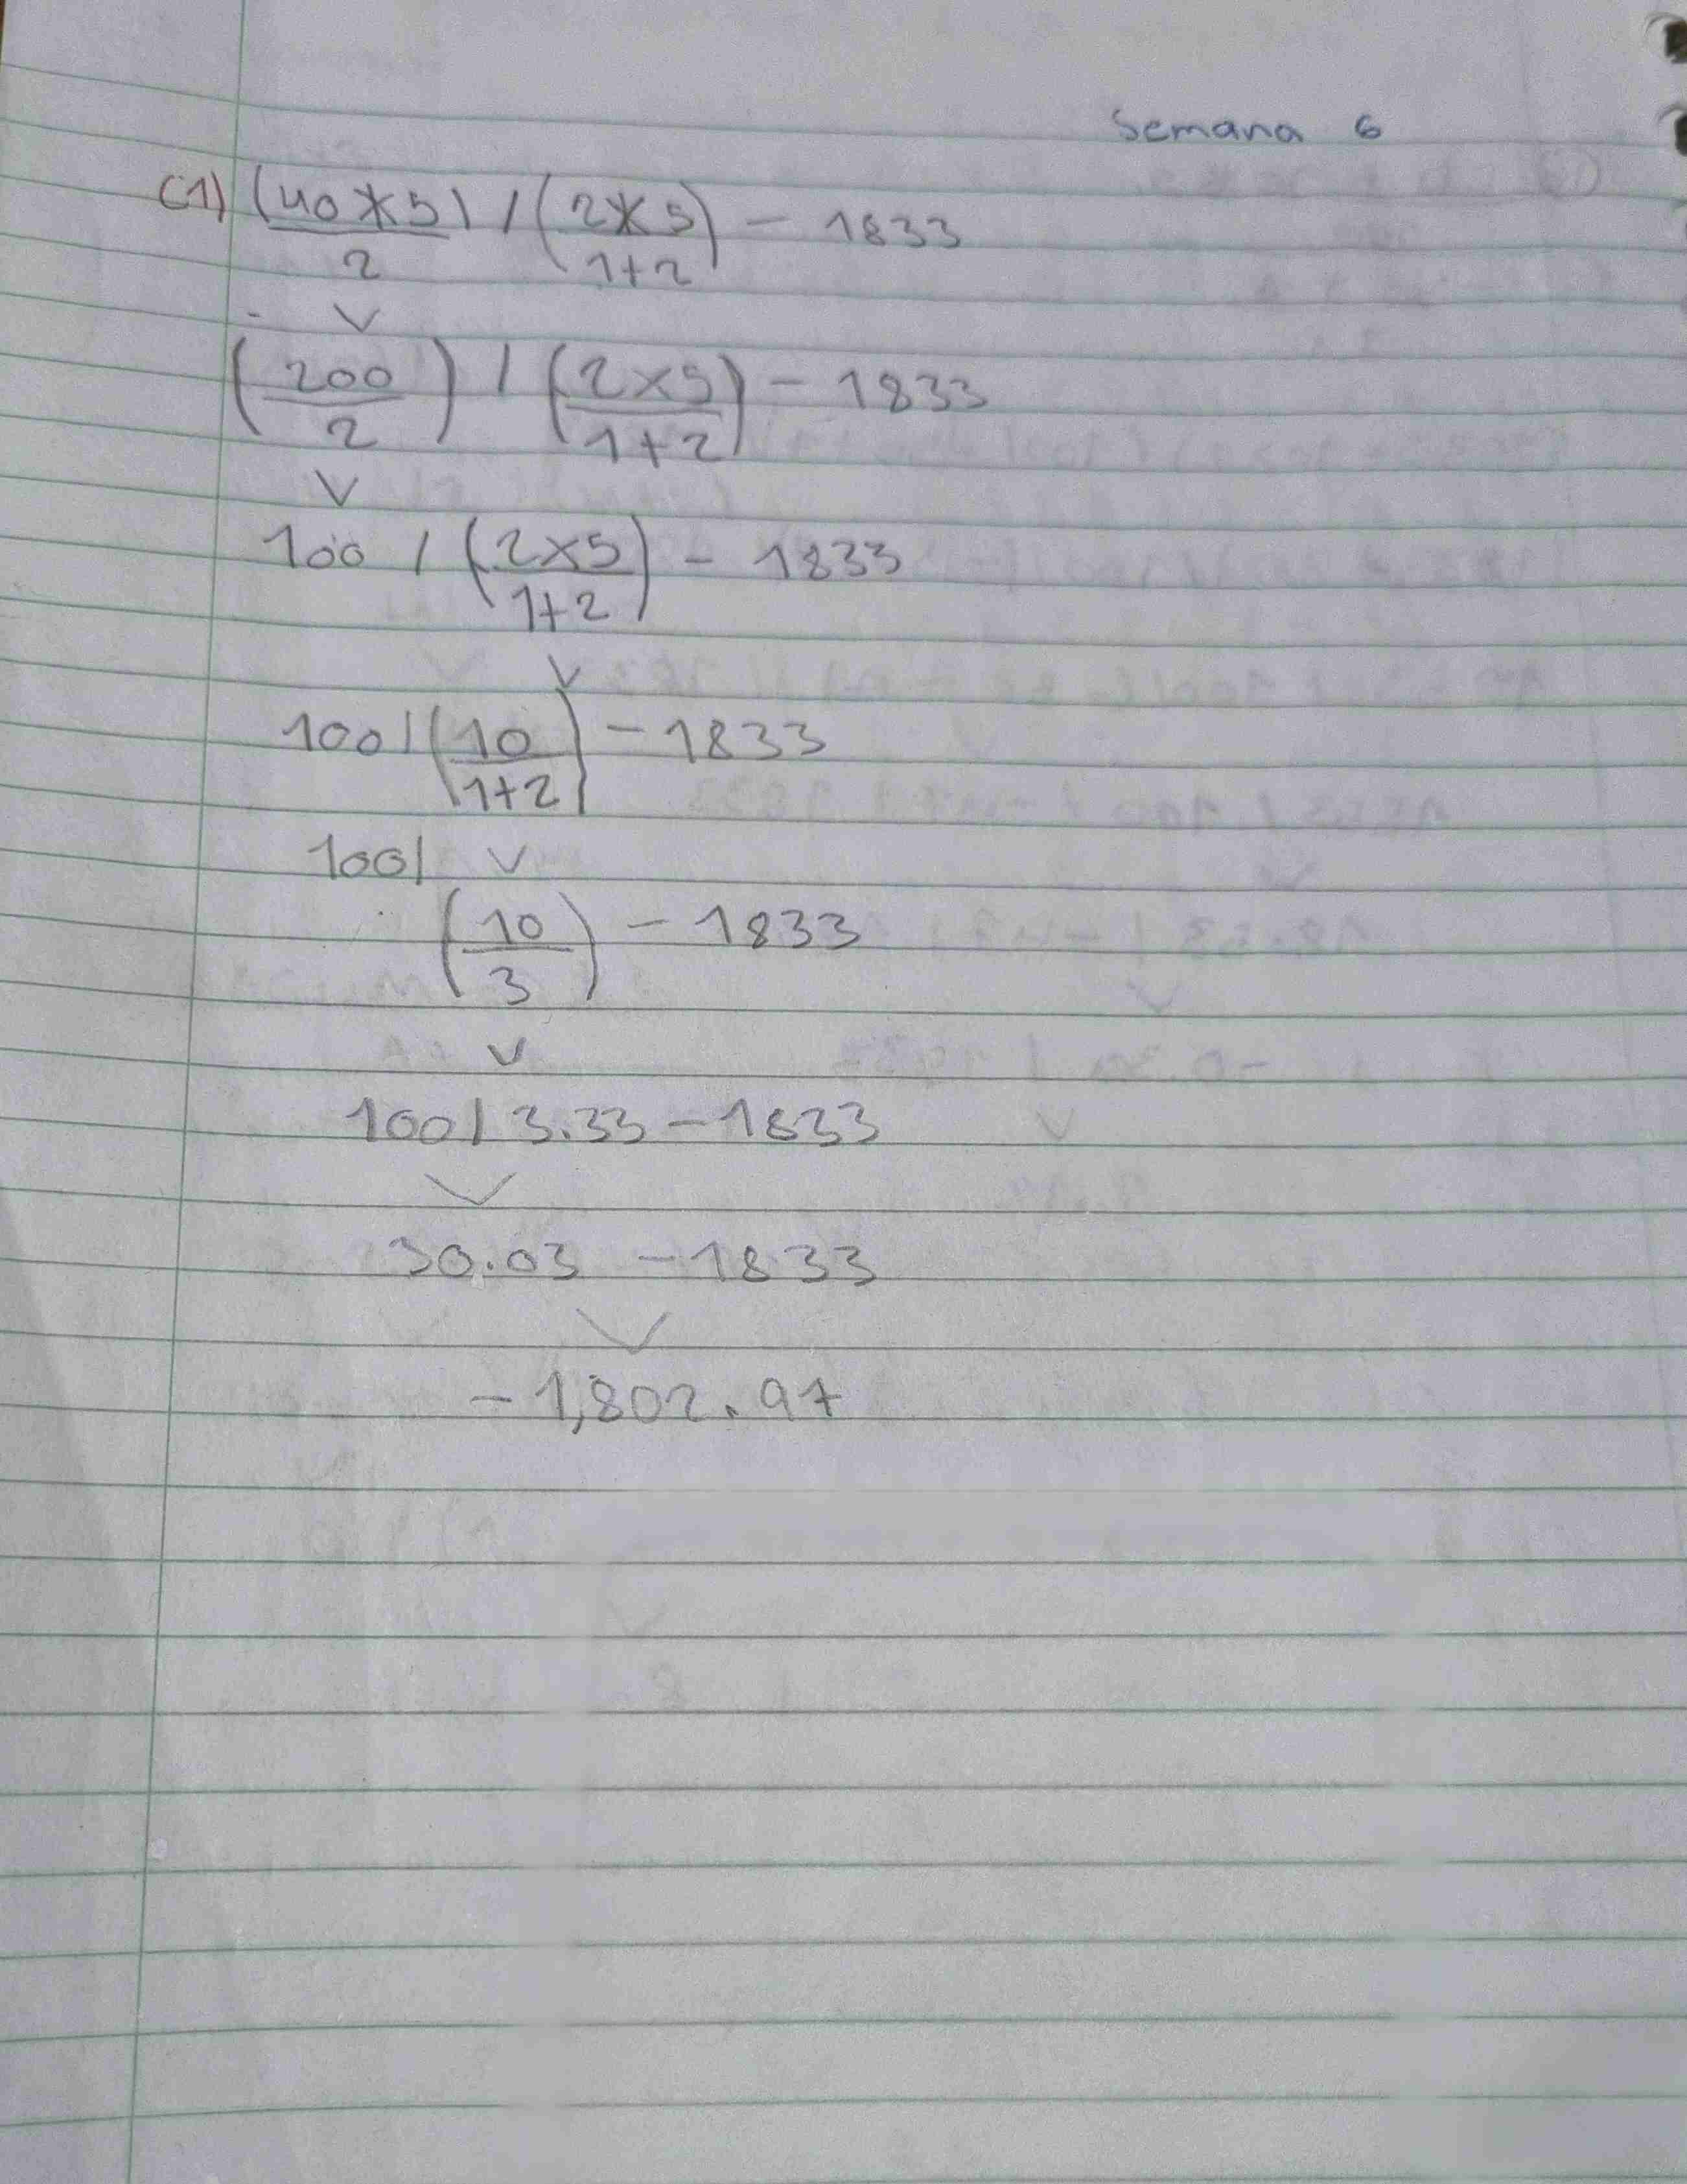 Semana 6
C1) (40*5)/2 / (2*5)/(1+2) - 1833
(200/2) / (2x5)/(1+2) - 1833
100 / (2x5)/(1+2) - 1833
100/(10)/(1+2) - 1833
100/
(10/3) - 1833
100/3.33-1833
30.03 -1833
-1,802.97